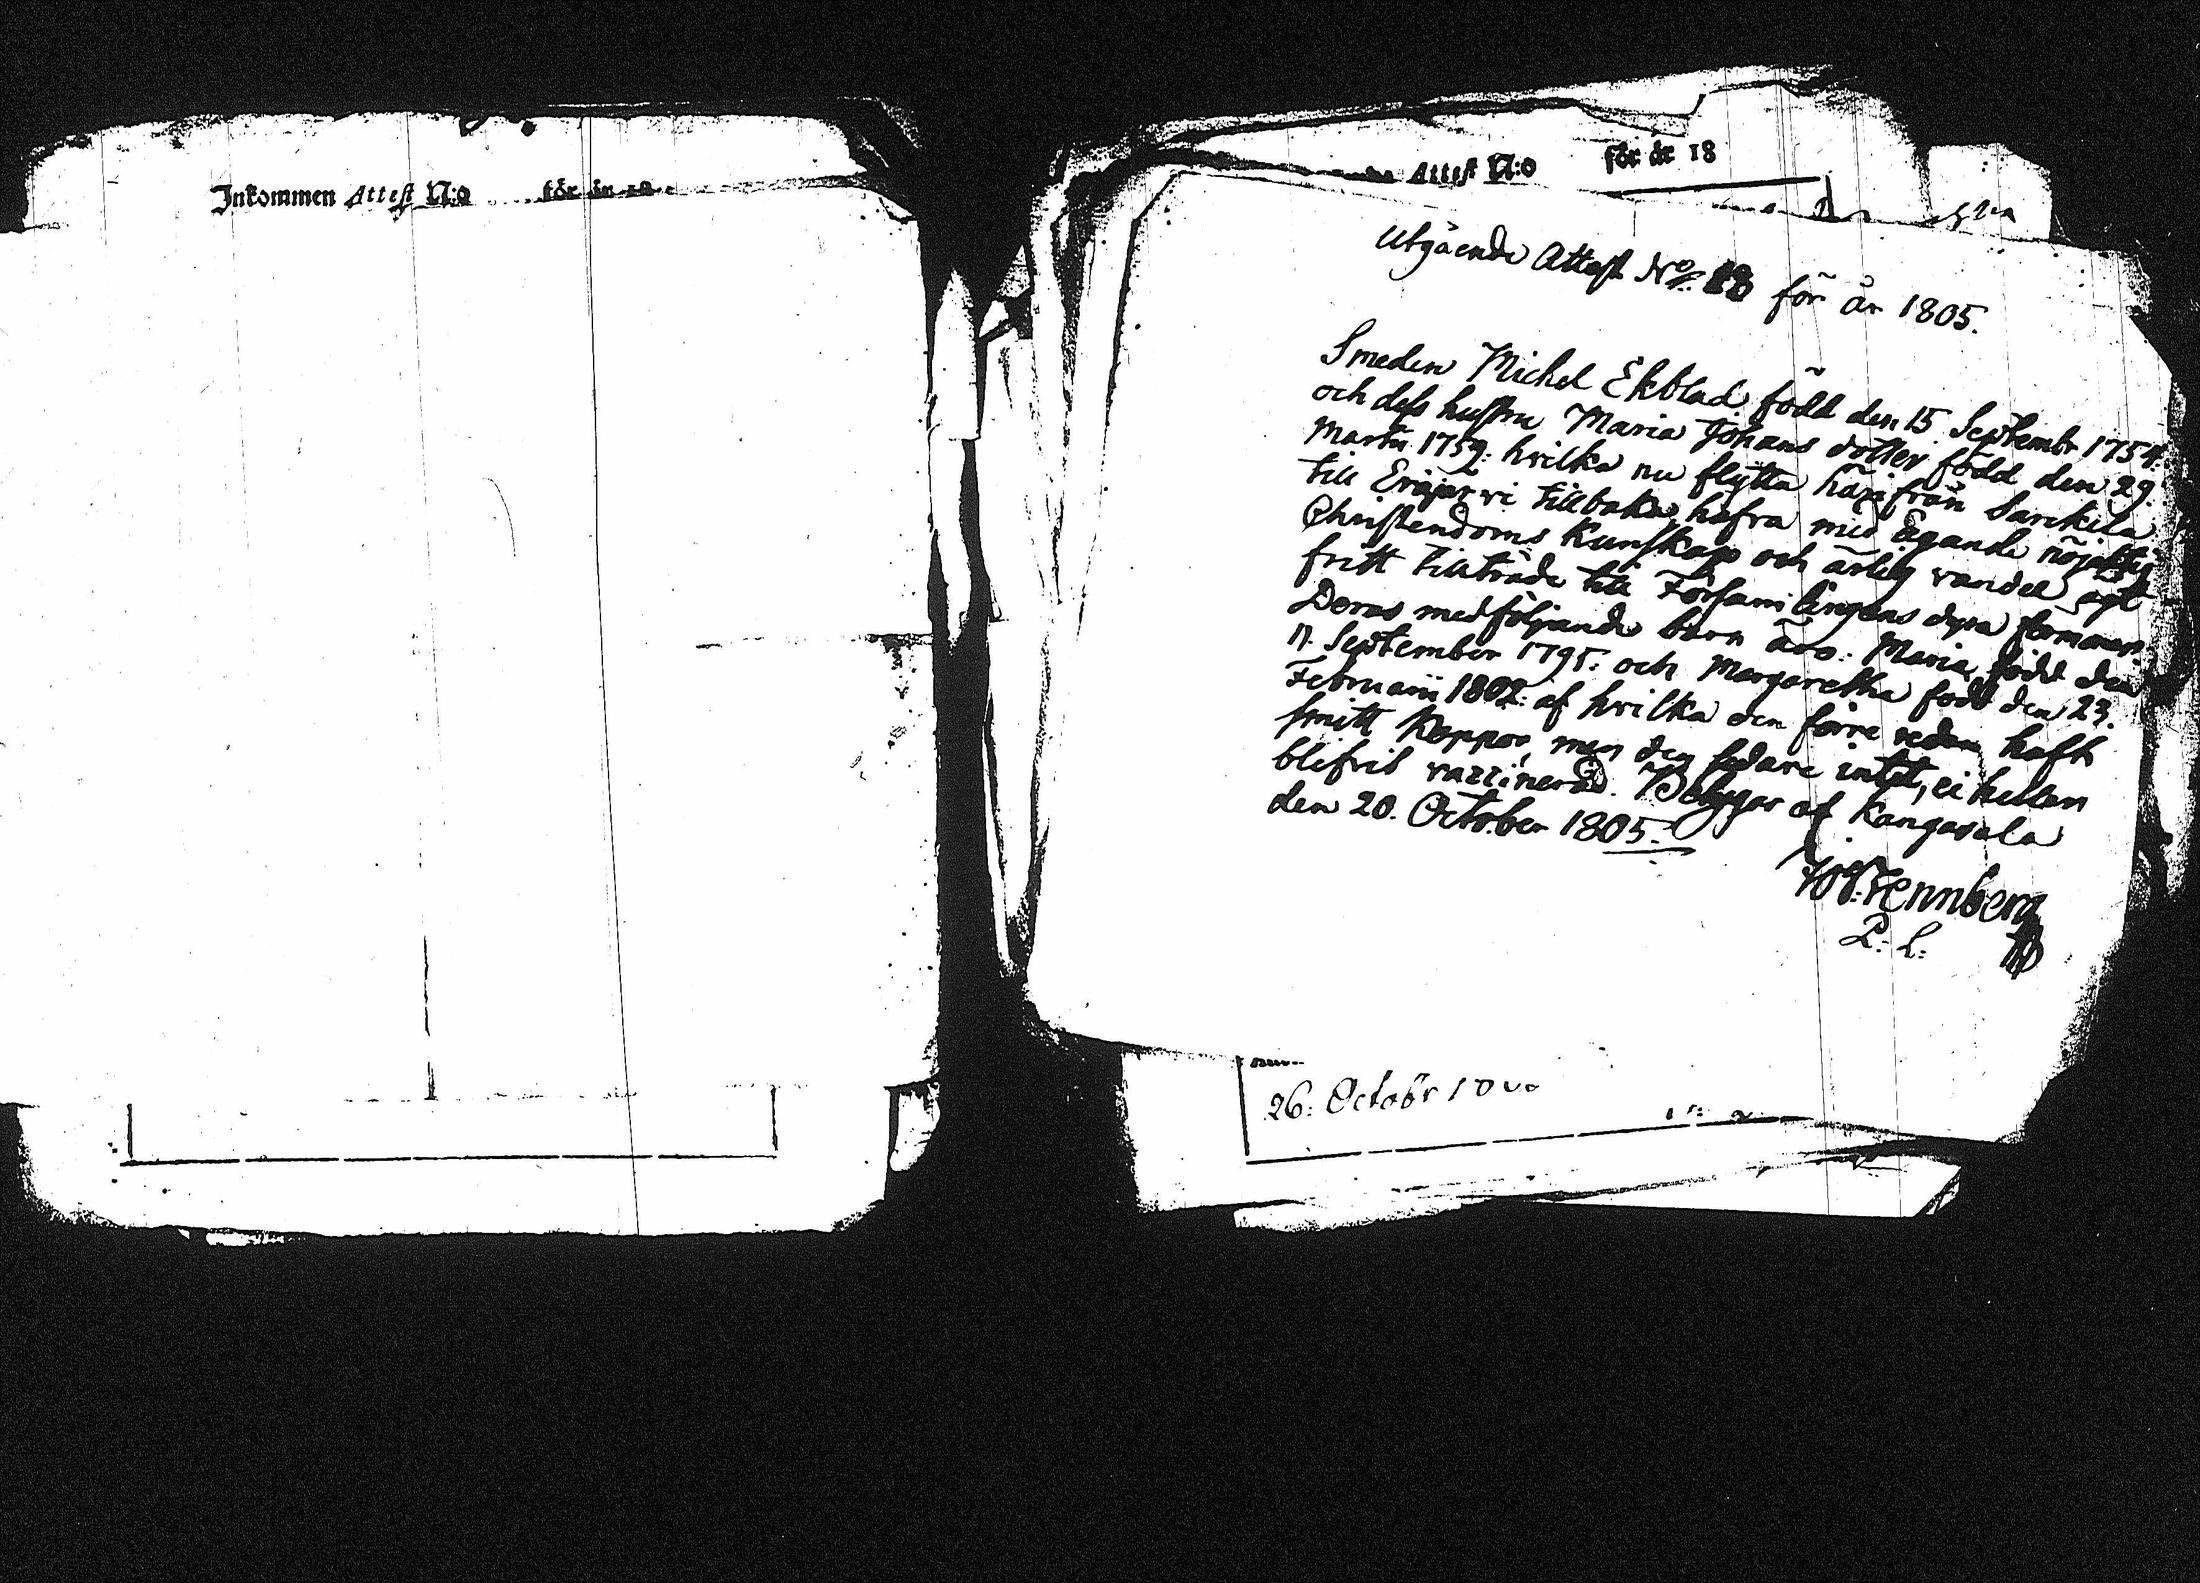 Inkommen Attest N:o för år 18
Attest N:o för år 18
Utgående Attest No: för år 1805.
Smeden Michel Ekblad född den 15 Septembr 1754.
och dess hustru Maria Johans dotter född den 29.
Martii 1759: hvilka nu flytta härifrån Sarckila
till Eräjärvi tillbaka, hafva med ägande nöjaktig
Christendoms Kunskap och ärlig vandel ägt
fritt tillträde till Församlingens dyra förmoner.
Deras medföljande barn äro: Maria född den
17. September 1795: och Margaretha född den 23.
Februarii 1802: af hvilka den förre redan haft
smitt Koppor, men den sednare intet, ei heller
blifvit vaccinerad. Betygar af Kangasala
den 20. October 1805.
Wennberg
P: L:
26: Octobr